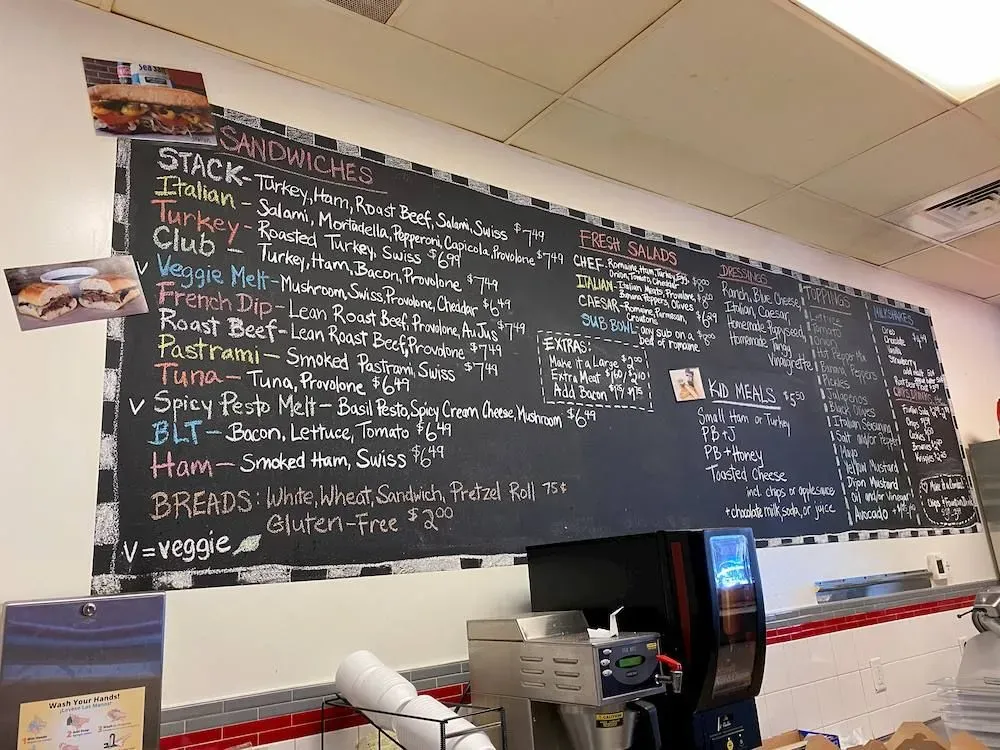 SANDWICHES
STACK - Turkey, Ham, Roast Beef, Salami, Swiss $7.49
Italian - Salami, Mortadella, Pepperoni, Capicola, Provolone $7.49
Turkey - Roasted Turkey, Swiss $6.99
Club - Turkey, Ham, Bacon, Provolone $7.49
V Veggie Melt - Mushroom, Swiss, Provolone, Cheddar $6.49
French Dip - Lean Roast Beef, Provolone, Au Jus $7.49
Roast Beef - Lean Roast Beef, Provolone $7.49
Pastrami - Smoked Pastrami, Swiss $7.49
Tuna - Tuna, Provolone $6.49
V Spicy Pesto Melt - Basil Pesto, Spicy Cream Cheese, Mushroom $6.49
BLT - Bacon, Lettuce, Tomato $6.49
Ham - Smoked Ham, Swiss $6.49
BREADS: White, Wheat, Sandwich, Pretzel Roll 75¢
Gluten-Free $2.00
V = veggie
FRESH SALADS
CHEF - Romaine, Ham, Turkey, Egg,
Onion, Tomato, Cheddar
ITALIAN - Italian Meats, Provolone,
Banana Peppers, Olives
CAESAR - Romaine, Parmesan,
Croutons $6.29
SUB BOWL any sub on a
bed of romaine
EXTRAS:
Make it a Large $2.00
Extra Meat
Add Bacon
DRESSINGS
Ranch, Blue Cheese,
Italian, Caesar,
Homemade Poppyseed,
Homemade Tangy
Vinaigrette
KID MEALS $5.50
Small Ham or Turkey
PB+J
PB+Honey
Toasted Cheese
incl. chips or applesauce
+ chocolate milk, soda, or juice
TOPPINGS
Lettuce
Tomato
Onion
Hot Pepper Mix
Banana Peppers
Pickles
Jalapenos
Black Olives
Italian Seasoning
Salt and/or Pepper
Mayo
Yellow Mustard
Dijon Mustard
Oil and/or Vinegar
Avocado
MILKSHAKES
Oreo
Chocolate
Vanilla
Strawberry
Root Beer
Chips
Cookies
Brownies
Wash Your Hands!
¡Lávese Las Manos!
1
2
3
CAUTION